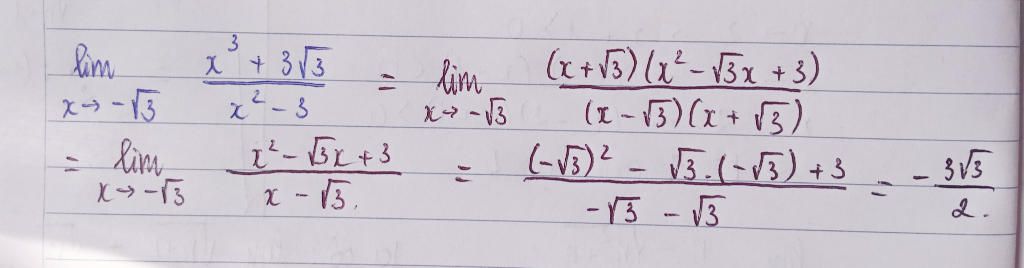 lim x→-√3 (x³ + 3√3)/(x² - 3) = lim x→-√3 ((x+√3)(x² - √3x + 3))/((x - √3)(x + √3))
= lim x→-√3 (x² - √3x + 3)/(x - √3). = ((-√3)² - √3.(-√3) + 3)/(-√3 - √3) = - 3√3/2.